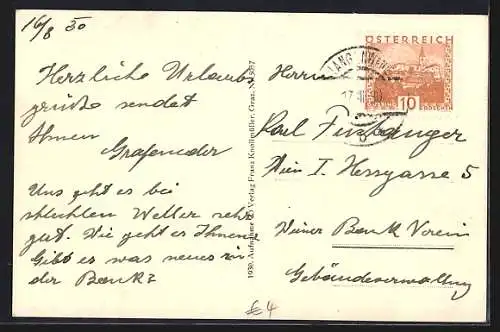 16/8 30
Herzliche Urlaubs
grüße sendet
Ihnen
Grafeneder
Uns geht es bei
schlechten Wetter sehr
gut. Wie geht es Ihnen
Gibt es was neues in
der Bank?
1930. Aufnahme u. Verlag Franz Knollmüller, Graz. Nr.
ÖSTERREICH
10
GROSCHEN
Herrn
Karl
Wien I. Hessgasse 5
Wiener Bank Verein
Gebäudeverwaltung
£4